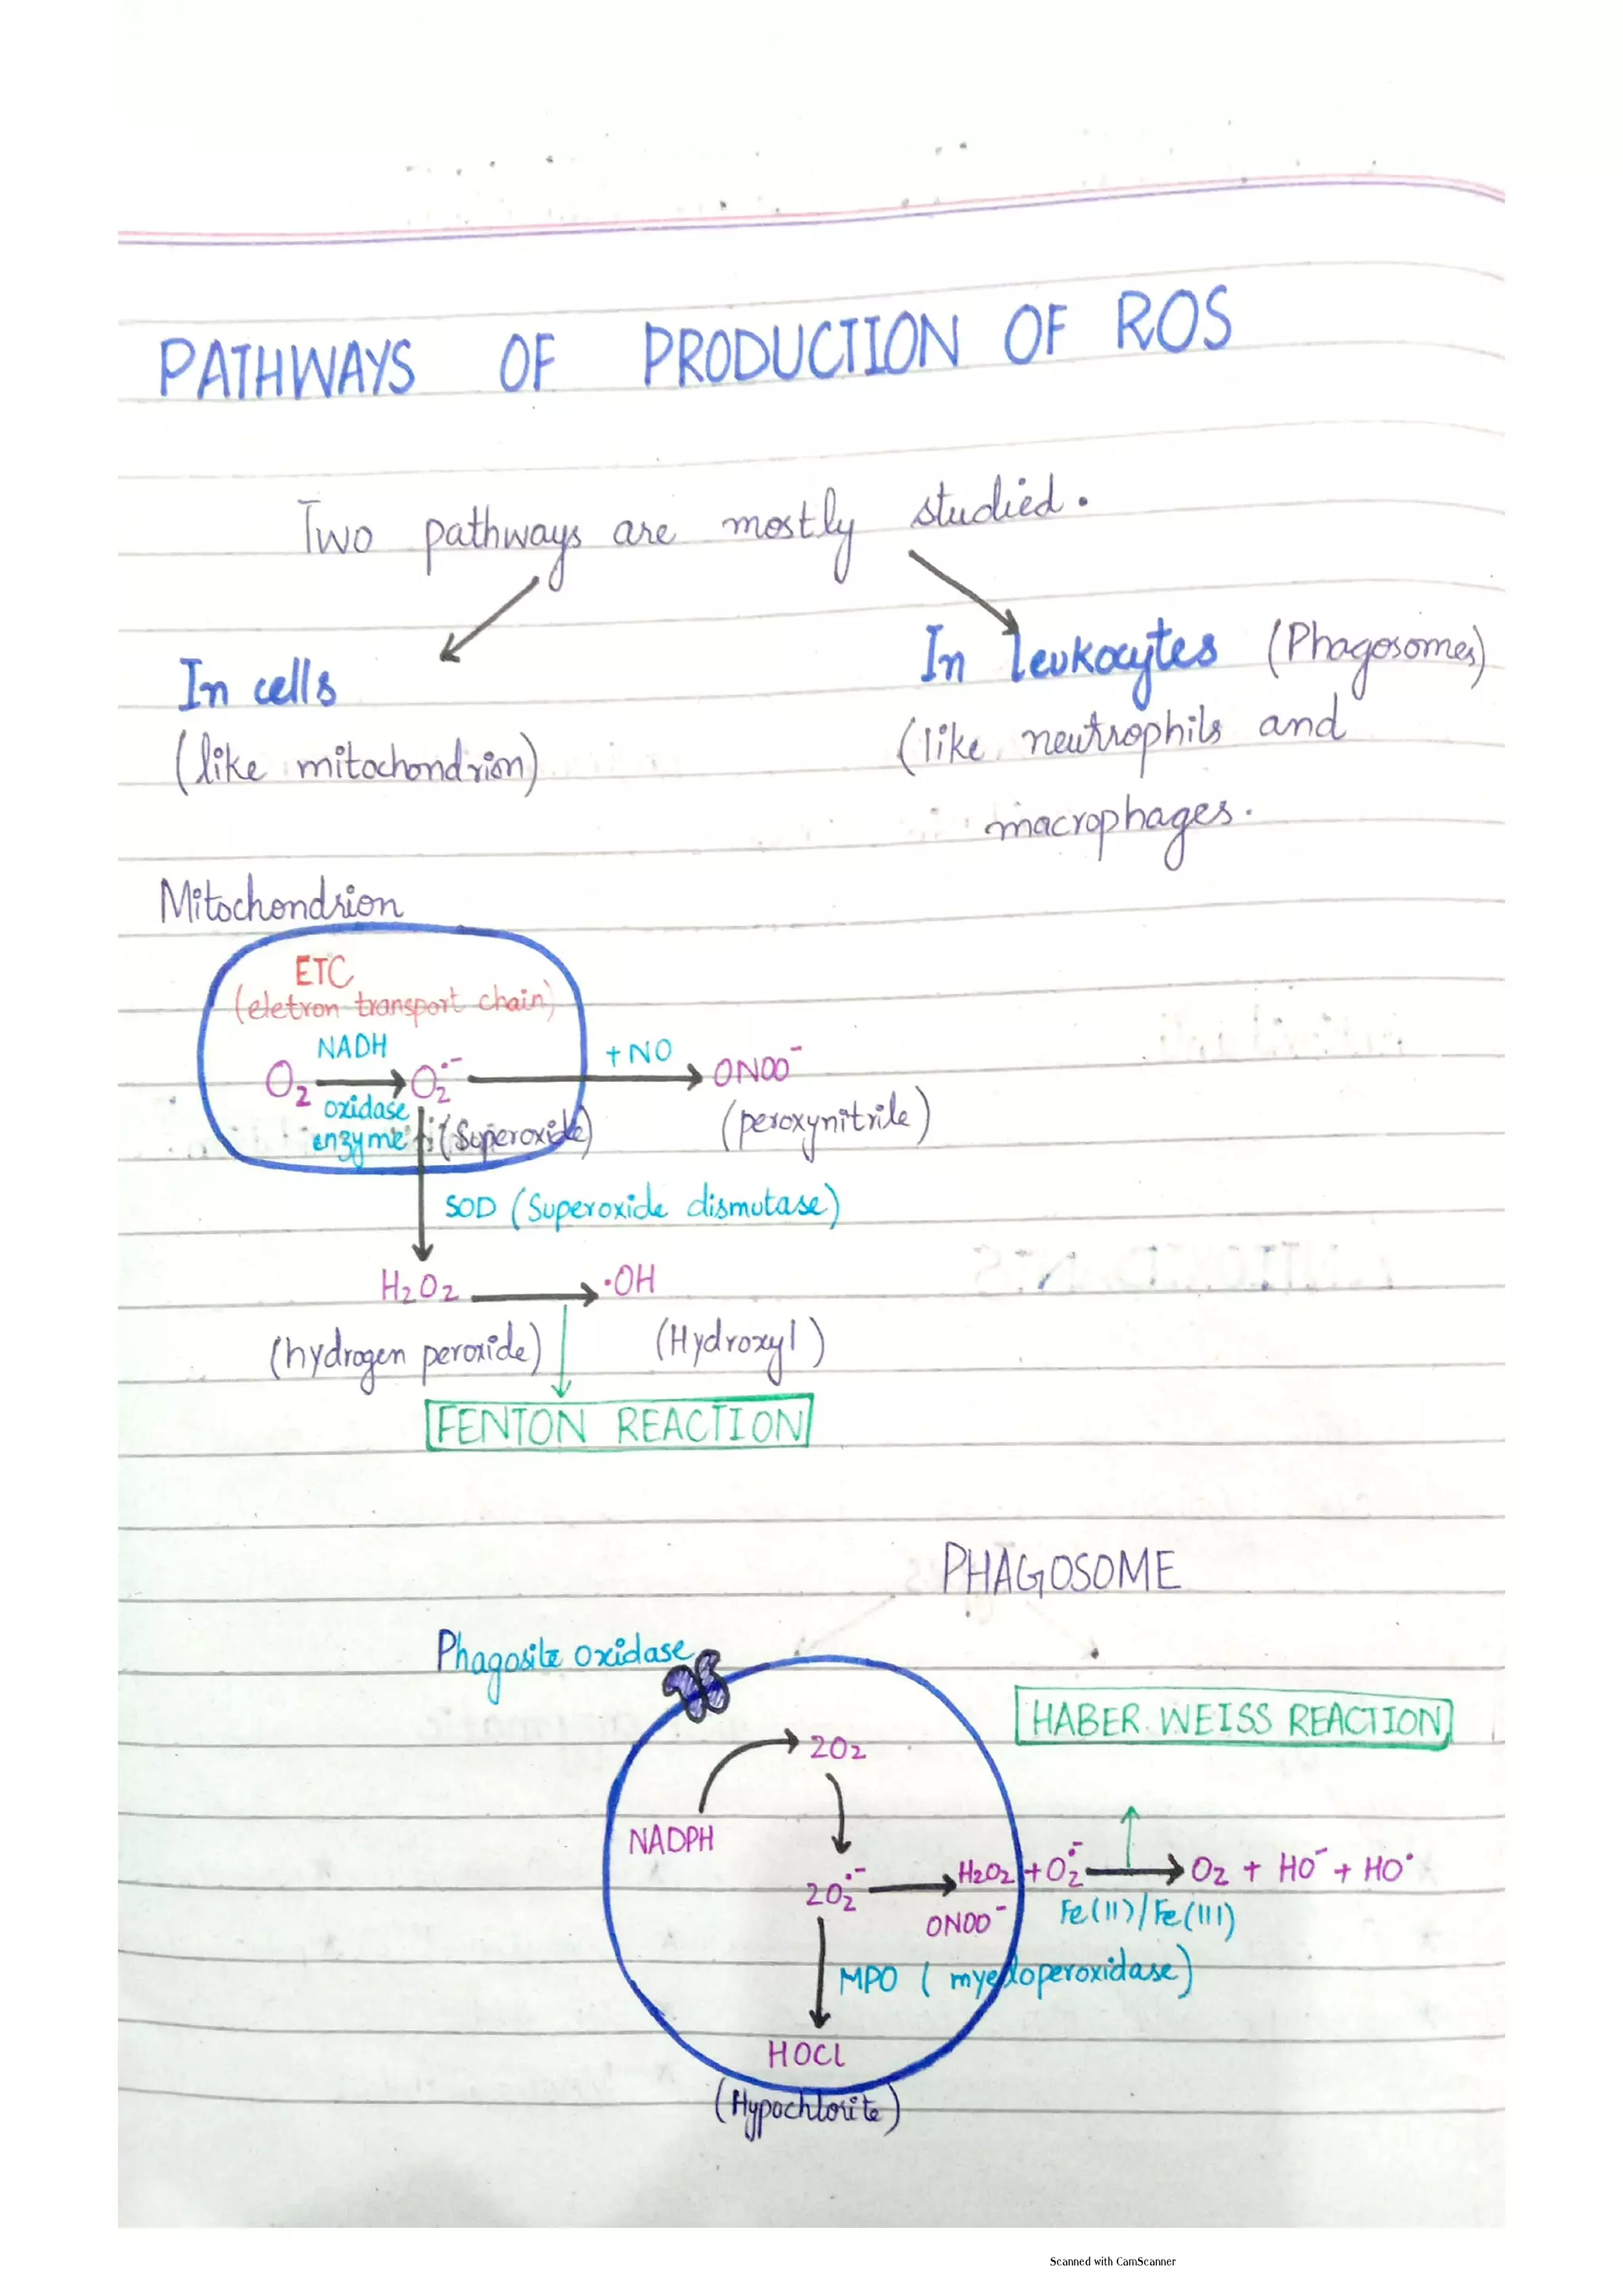 PATHWAYS OF PRODUCTION OF ROS
Two pathways are mostly studied.
In cells
(like mitochondrion)
In leukocytes (Phagosomes)
(like neutrophils and
macrophages.
Mitochondrion
ETC
(eletron transport chain)
NADH
O2 → O2•-
oxidase
enzyme
(Superoxide)
+NO
ONOO-
(peroxynitrile)
SOD (Superoxide dismutase)
H2O2 → •OH
(hydrogen peroxide) (Hydroxyl)
FENTON REACTION
PHAGOSOME
Phagosite oxidase
HABER. WEISS REACTION
2O2
NADPH
2O2•- → H2O2 + O2•- → O2 + HO- + HO•
ONOO-
Fe(II)/Fe(III)
MPO (myeloperoxidase)
HOCL
(Hypochlorite)
Scanned with CamScanner